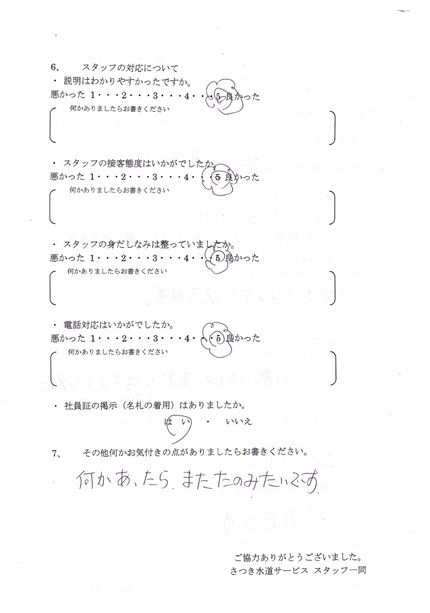 6、　スタッフの対応について
・ 説明はわかりやすかったですか。
悪かった 1・・・2・・・3・・・4・・・5 良かった
何かありましたらお書きください
・ スタッフの接客態度はいかがでしたか。
悪かった 1・・・2・・・3・・・4・・・5 良かった
何かありましたらお書きください
・ スタッフの身だしなみは整っていましたか。
悪かった 1・・・2・・・3・・・4・・・5 良かった
何かありましたらお書きください
・ 電話対応はいかがでしたか。
悪かった 1・・・2・・・3・・・4・・・5 良かった
何かありましたらお書きください
・ 社員証の掲示（名札の着用）はありましたか。
はい　・　いいえ
7、　その他何かお気付きの点がありましたらお書きください。
何かあったら、またたのみたいです。
ご協力ありがとうございました。
さつき水道サービス スタッフ一同